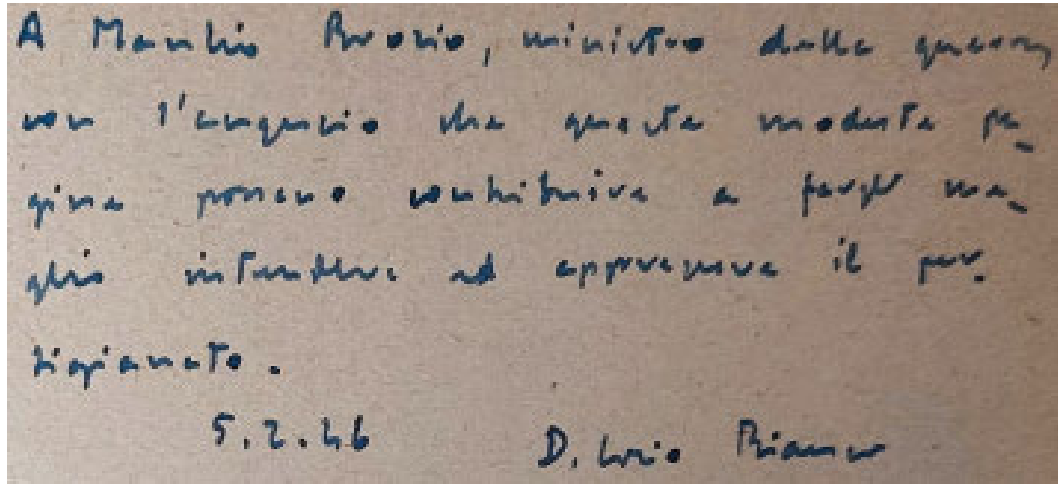 A Manlio Brosio, ministro della guerra,
con l'augurio che queste modeste pa-
gine possano contribuire a fargli me-
glio intendere ed apprezzare il par-
tigianato.
5.2.46 D. Livio Bianco